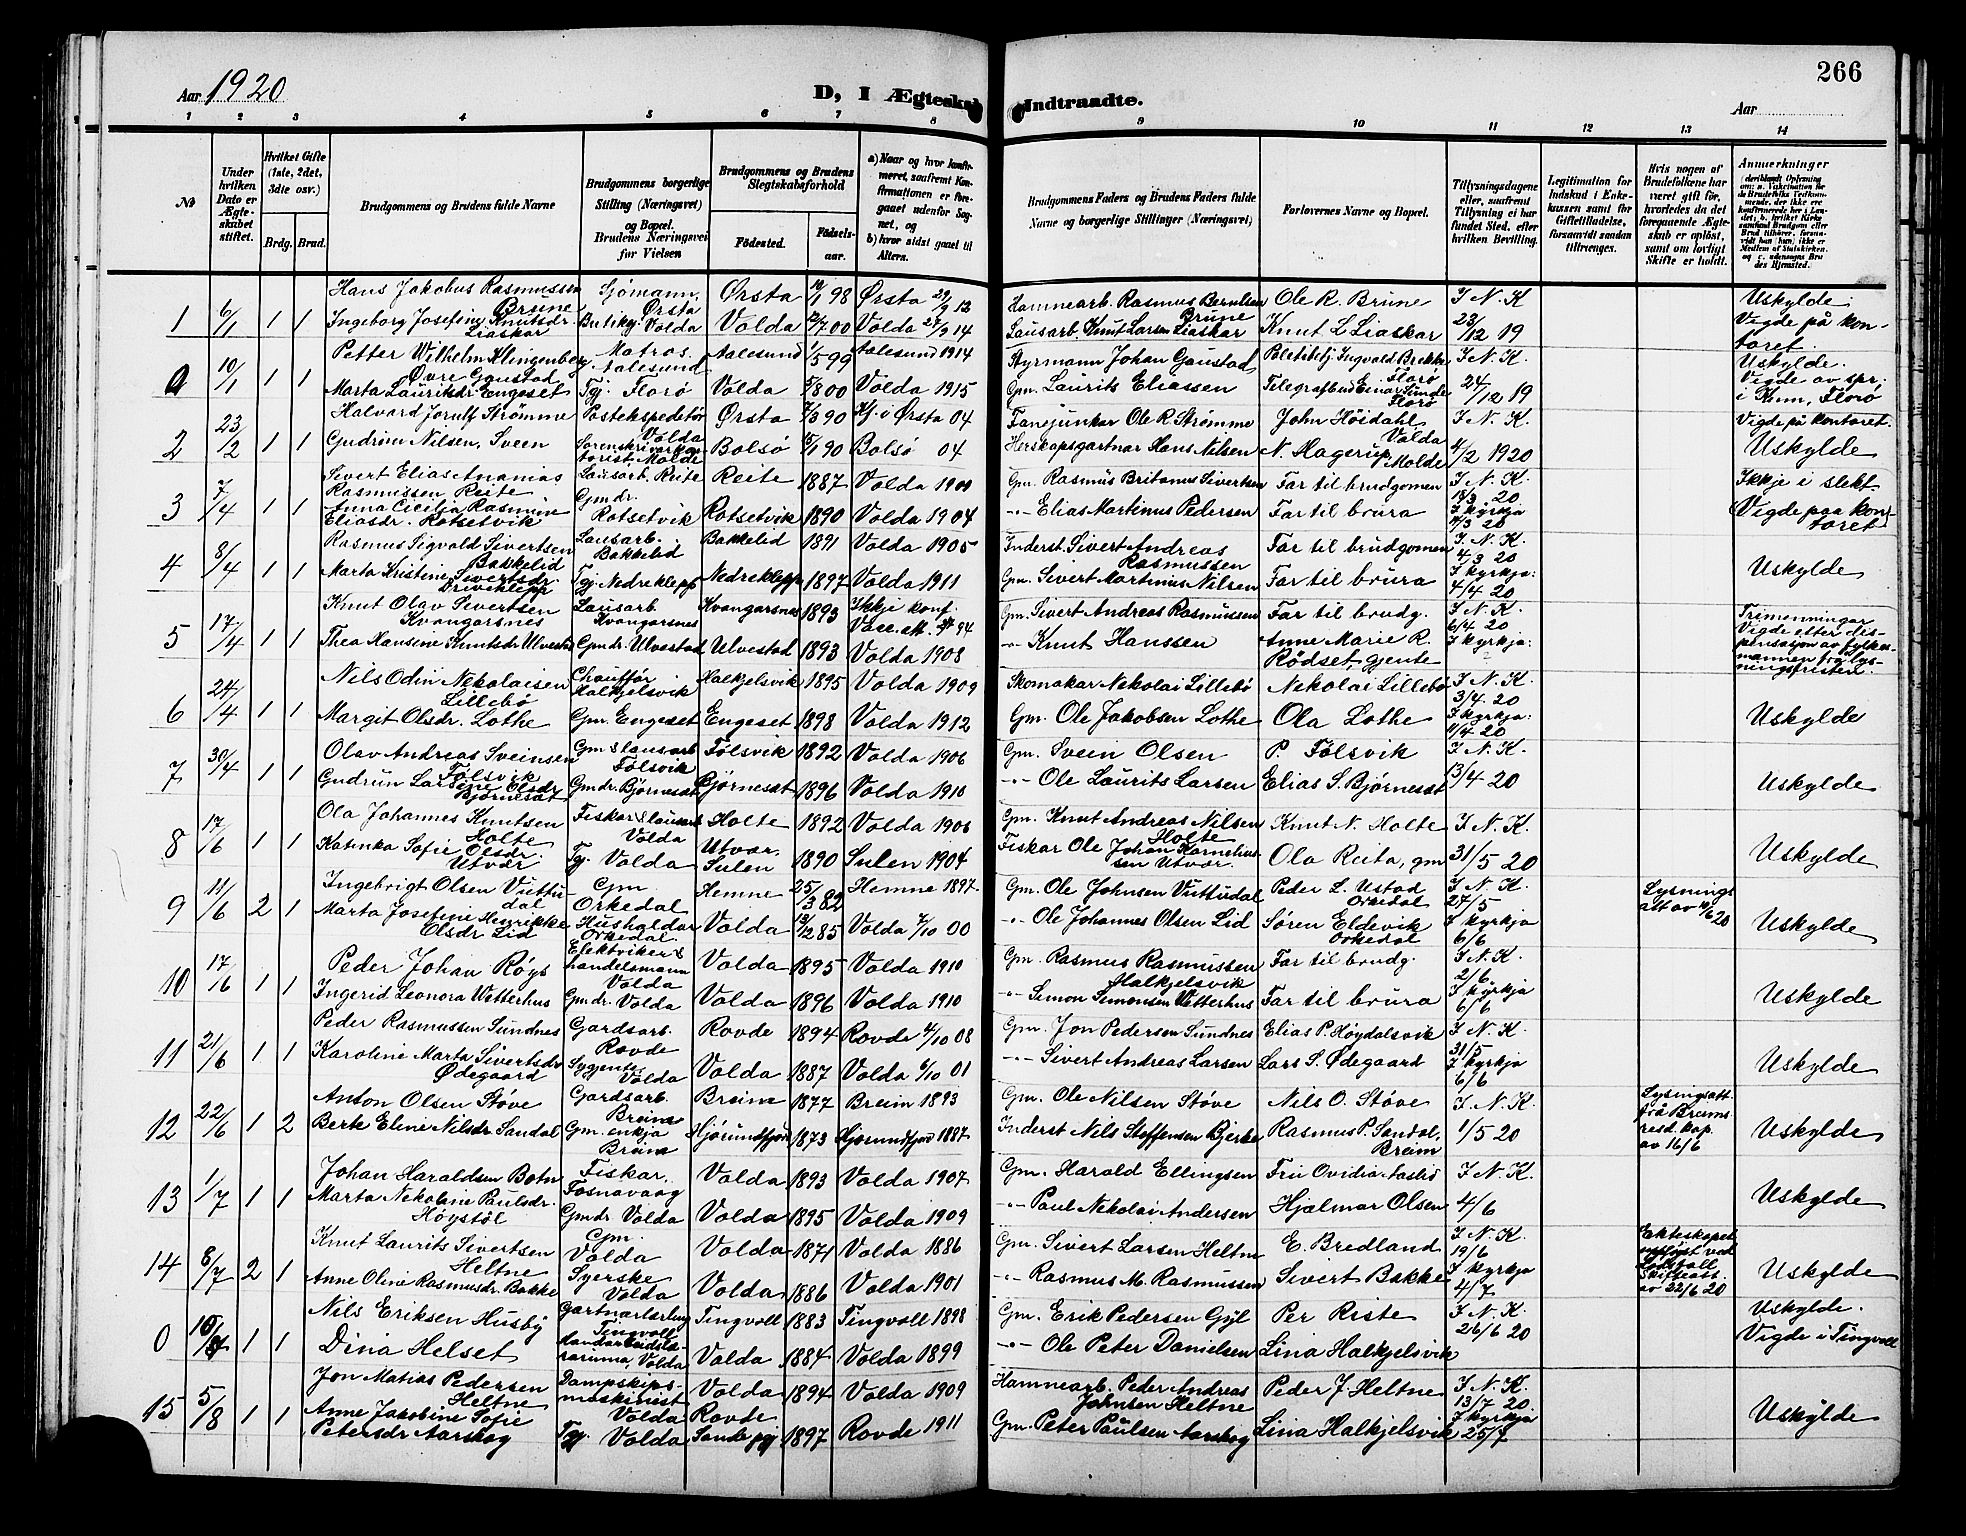 266
Aar 1920
D, I Ægteskab
Indtraadte.
Aar
1 2 3 4 5 6 7 8 9 10 11 12 13 14
No
Under hvilken Dato er Ægteskabet stiftet.
Hvilket Gifte (1ste, 2det, 3die osv.)
Brdg. Brud.
Brudgommens og Brudens fulde Navne
Brudgommens borgerlige Stilling (Næringsvei) og Bopæl. Brudens Næringsvei før Vielsen
Brudgommens og Brudens Slegtskabsforhold
Fødested. Fødselsaar.
a) Naar og hvor konfirmeret, saafremt Konfirmationen er foregaaet udenfor Sognet, og
b) hvor sidst gaaet til Alters.
Brudgommens Faders og Brudens Faders fulde Navne og borgerlige Stillinger (Næringsvei)
Forlovernes Navne og Bopæl.
Tillysningsdagene eller, saafremt Tillysning ei har fundet Sted, efter hvilken Bevilling.
Legitimation for Indskud i Enkekassen samt for Giftetilladelse, forsaavidt saadan tiltrænges.
Hvis nogen af Brudefolkene har været gift før, hvorledes da det foregaaende Ægteskab er opløst, samt om lovligt Skifte er holdt.
Anmerkninger
1 6/1 1 1 Hans Jakobus Rasmussen Brune Sjømann, Ørsta Ørsta 98 Ørsta 29/9 12 Hamnearb. Rasmus Berntsen Brune Ole R. Brune I N. K Uskylde.
Ingeborg Josefine Knutsdr. Liaskar Butikgj. Volda Volda 00 Volda 14 Lausarb. Knut Larsen Liaskar Knut L Liaskar 23/12 19 Vigde på kontoret.
0 10/1 1 1 Petter Wilhelm Klingenberg Øvre Gaustad Matros. Aalesund Aalesund 1/5 99 Aalesund 1914 Styrmann Johan Gaustad Ingvald Brekke Florø I N. K. Uskylde.
Marta Lauriksdr. Engeset Tgj. Florø Volda 5/8 00 Volda 1915 Gm. Laurits Eliassen Telegrafbud Einar Sunde Florø 24/12 19 Vigde av spr. i Kinn, Florø
2 23/2 1 1 Halvard Jorulf Strømme Postekspeditør Volda Ørsta 90 Kj. i Ørsta 04 Fanejunkar Ole R. Strømme John Høidahl Volda I N. K. Vigde på kontoret.
Gudrun Nilsen, Sveen Sorenskrivarkontorist. Molde Bolsø 90 Bolsø 04 Herskapsgartnar Hans Nilsen N. Hagerup, Molde 4/2 1920 Uskylde
3 7/4 1 1 Sivert Elias Ananias Rasmussen Reite Lausarb. Reite Reite 1887 Volda Gm. Rasmus Britanus Sivertsen Far til brudgomen I N. K. 20 Ikkje i slekt
Anna Cicilia Rasmine Eliasdr. Rotsetvik Gmdr. Rotsetvik Rotsetvik 1890 Volda 1904 -"- Elias Martinus Pedersen Far til brura I kyrkja 20 Vigde paa kontoret
4 8/4 1 1 Rasmus Sigvald Sivertsen Bakkelid Lausarb. Bakkelid Bakkelid 1891 Volda 1905 Inderst. Sivert Andreas Rasmussen Far til brudgomen I N. K. 4/3 20 Uskylde
Marta Kristine Sivertsdr. Driveklepp Tgj. Nedreklepp Nedreklepp 1897 Volda 1911 Gm. Sivert Martinus Nilsen Far til brura I kyrkja: 4/4 20
5 17/4 1 1 Knut Olav Sivertsen Kvangarsnes Lausarb. Kvangarsnes Kvangarsnes 1893 Ikkje konf. Vacc. att. 94 Gm. Sivert Andreas Rasmussen Far til brudg. I N. K. 6/4 20 Trimenningar
Thea Hansine Knutsdr. Ulvestad Gmdr. Ulvestad Ulvestad 1893 Volda 1908 -"- Knut Hanssen Anne Marie R. Rødset, gjente I kyrkja: Vigde etter dispensasjon av fylkesmannen frå lysningsfristen.
6 24/4 1 1 Nils Odin Nekolaisen Lillebø Chauffør Halkjelsvik Halkjelsvik 1895 Volda 1909 Skomakar Nekolai Lillebø Nekolai Lillebø I N. K. 3/4 20 Uskylde
Margit Olsdr. Lothe Gm. Engeset Engeset 1898 Volda 1912 Gm. Ole Jakobsen Lothe Ola Lothe I kyrkja: 4/4 20
7 30/4 1 1 Olav Andreas Sveinsen Følsvik Gm & lausarb Følsvik Følsvik 1892 Volda 1906 Gm. Svein Olsen P. Følsvik I N. K. Uskylde
Gudrun Larsine Olsdr. Bjørneset Gmdr. Bjørneset Bjørneset 1896 Volda 1910 -"- Ole Laurits Larsen Elias S. Bjørneset 13/4 20
8 17/6 1 1 Ola Johannes Knutsen Holte Fiskar & lausarb Volda Holte 1892 Volda 1906 Gm. Knut Andreas Nilsen Holte Knut N. Holte I N. K. Uskylde
Katinka Sofie Olsdr. Utvær Tgj. Volda Utvær, Sulen 1890 Sulen 1904 Fiskar Ole Johan Kornelius-sen Utvær. Ola Reita, gm 31/5 20
9 11/6 2 1 Ingebrigt Olsen Vuttudal Gm. Orkedal Hemne 25/3 82 Hemne 1897 Gm. Ole Johnsen Vuttudal Peder L. Ustad Orkedal I N. K. 27/5 Lysningsatt av 10/6 20 Uskylde
Marta Josefine Henrikke Olsdr Lid Husholdar Orkedal. Volda 13/12 85 Volda 7/10 00 -"- Ole Johannes Olsen Lid Søren Eldevik Orkedal I kyrkja 6/6
10 17/6 1 1 Peder Johan Røys Elektriker & handelsmann Volda Volda 1895 Volda 1910 Gm. Rasmus Rasmussen Halkjelsvik Far til brudg. I N. K. 2/6 Uskylde
Ingerid Leonora Wetterhus Gmdr. Volda Volda 1896 Volda 1910 -"- Simon Simonsen Vetterhus Far til brura I kyrkja 6/6
11 21/6 1 1 Peder Rasmussen Sundnes Gardsarb. Rovde Rovde 1894 Rovde 4/10 08 Gm. Jon Pedersen Sundnes Elias P. Høydalsvik I N. K. 31/5 Uskylde
Karoline Marta Sivertsdr Ødegaard Sygjente, Volda Volda 1887 Volda 6/10 01 -"- Sivert Andreas Larsen Lars S. Ødegaard I kyrkja 6/6
12 22/6 1 2 Anton Olsen Støve Gardsarb. Breim Breim 1877 Breim 1893 Gm. Ole Nilsen Støve Nils O. Støve I N. K. Lysingsatt. frå Breims resd. kap. av 16/6 Uskylde
Berte Eline Nilsdr Sandal Gm. enkja Breim Hjørundfjord 1873 Hjørundfjord 1887 Inderst Nils Steffensen Bjerke Rasmus P. Sandal, Breim 1/5 20
13 1/7 1 1 Johan Haraldsen Botn Fiskar, Fosnavaag Volda 1893 Volda 1907 Gm. Harald Ellingsen Fru Ovidia Aaslid I N. K. Uskylde
Marta Nekoline Paulsdr. Høystøl Gmdr Volda Volda 1895 Volda 1909 -"- Paul Nekolai Andersen Hjalmar Olsen 4/6
14 8/7 2 1 Knut Laurits Sivertsen Heltne Gm. Volda Volda 1871 Volda 1886 Gm. Sivert Larsen Heltne E. Bredland I N. K 19/6 Ekteskapet oppløyst ved dødsfall Skifteatt. av 22/6 20 Uskylde
Anne Oline Rasmusdr. Bakke Syerske Volda Volda 1886 Volda 1901 -"- Rasmus M. Rasmussen Sivert Bakke I kyrkja 4/7
0 10/7 1 1 Nils Eriksen Husby Gartnar Tingvoll Tingvoll 1883 Tingvoll 1898 Gm. Erik Pedersen Gyl Per Riste I N. K. 26/6 20 Uskylde.
Dina Helset Volda Volda 1884 Volda 1899 -"- Ole Peter Danielsen Lina Halkjelsvik Vigde i Tingvoll
15 5/8 1 1 Jon Matias Pedersen Heltne Dampskipsmaskinist Volda Volda 1894 Volda 1909 Hamnearb. Peder Andreas Johnsen Heltne Peder J. Heltne I N. K. 13/7 20 Uskylde
Anne Jakobine Sofie Petersdr Aarskog Tgj. Volda Rovde Sande pgj 1897 Rovde 1911 Gm. Peter Paulsen Aarskog Lina Halkjelsvik I kyrkja 25/7